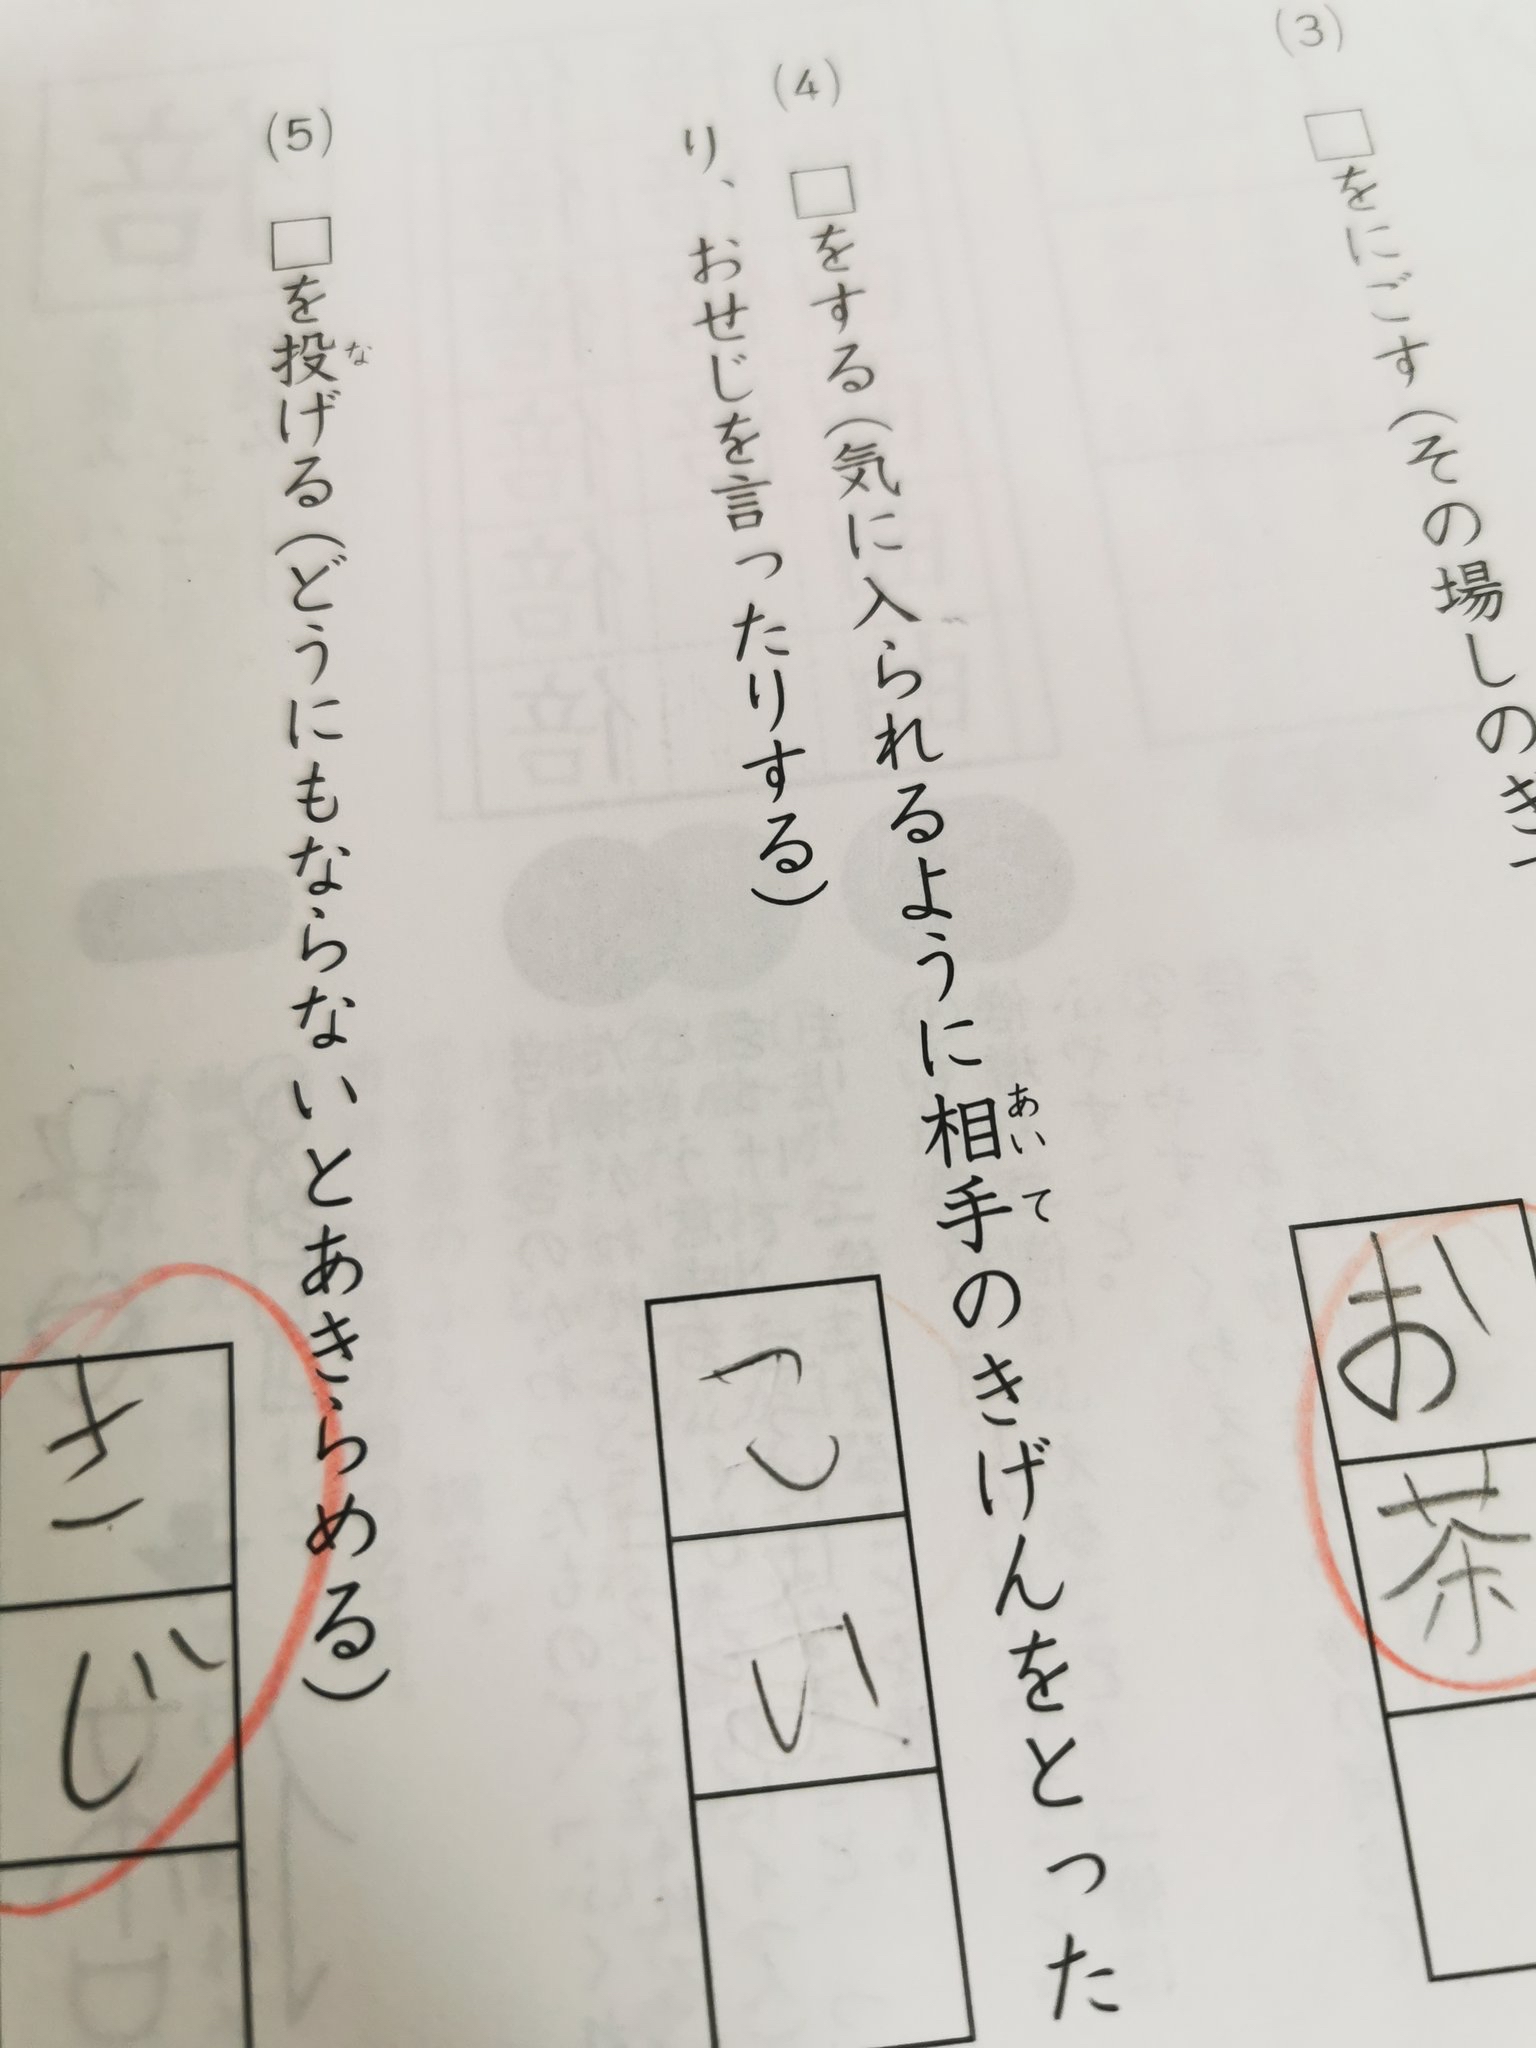 (3)
□をにごす(その場しのぎ
お茶
(4)
□をする(気に入られるように相手のきげんをとった
あいて
り、おせじを言ったりする)
こい
(5)
□を投げる(どうにもならないとあきらめる)
な
さじ